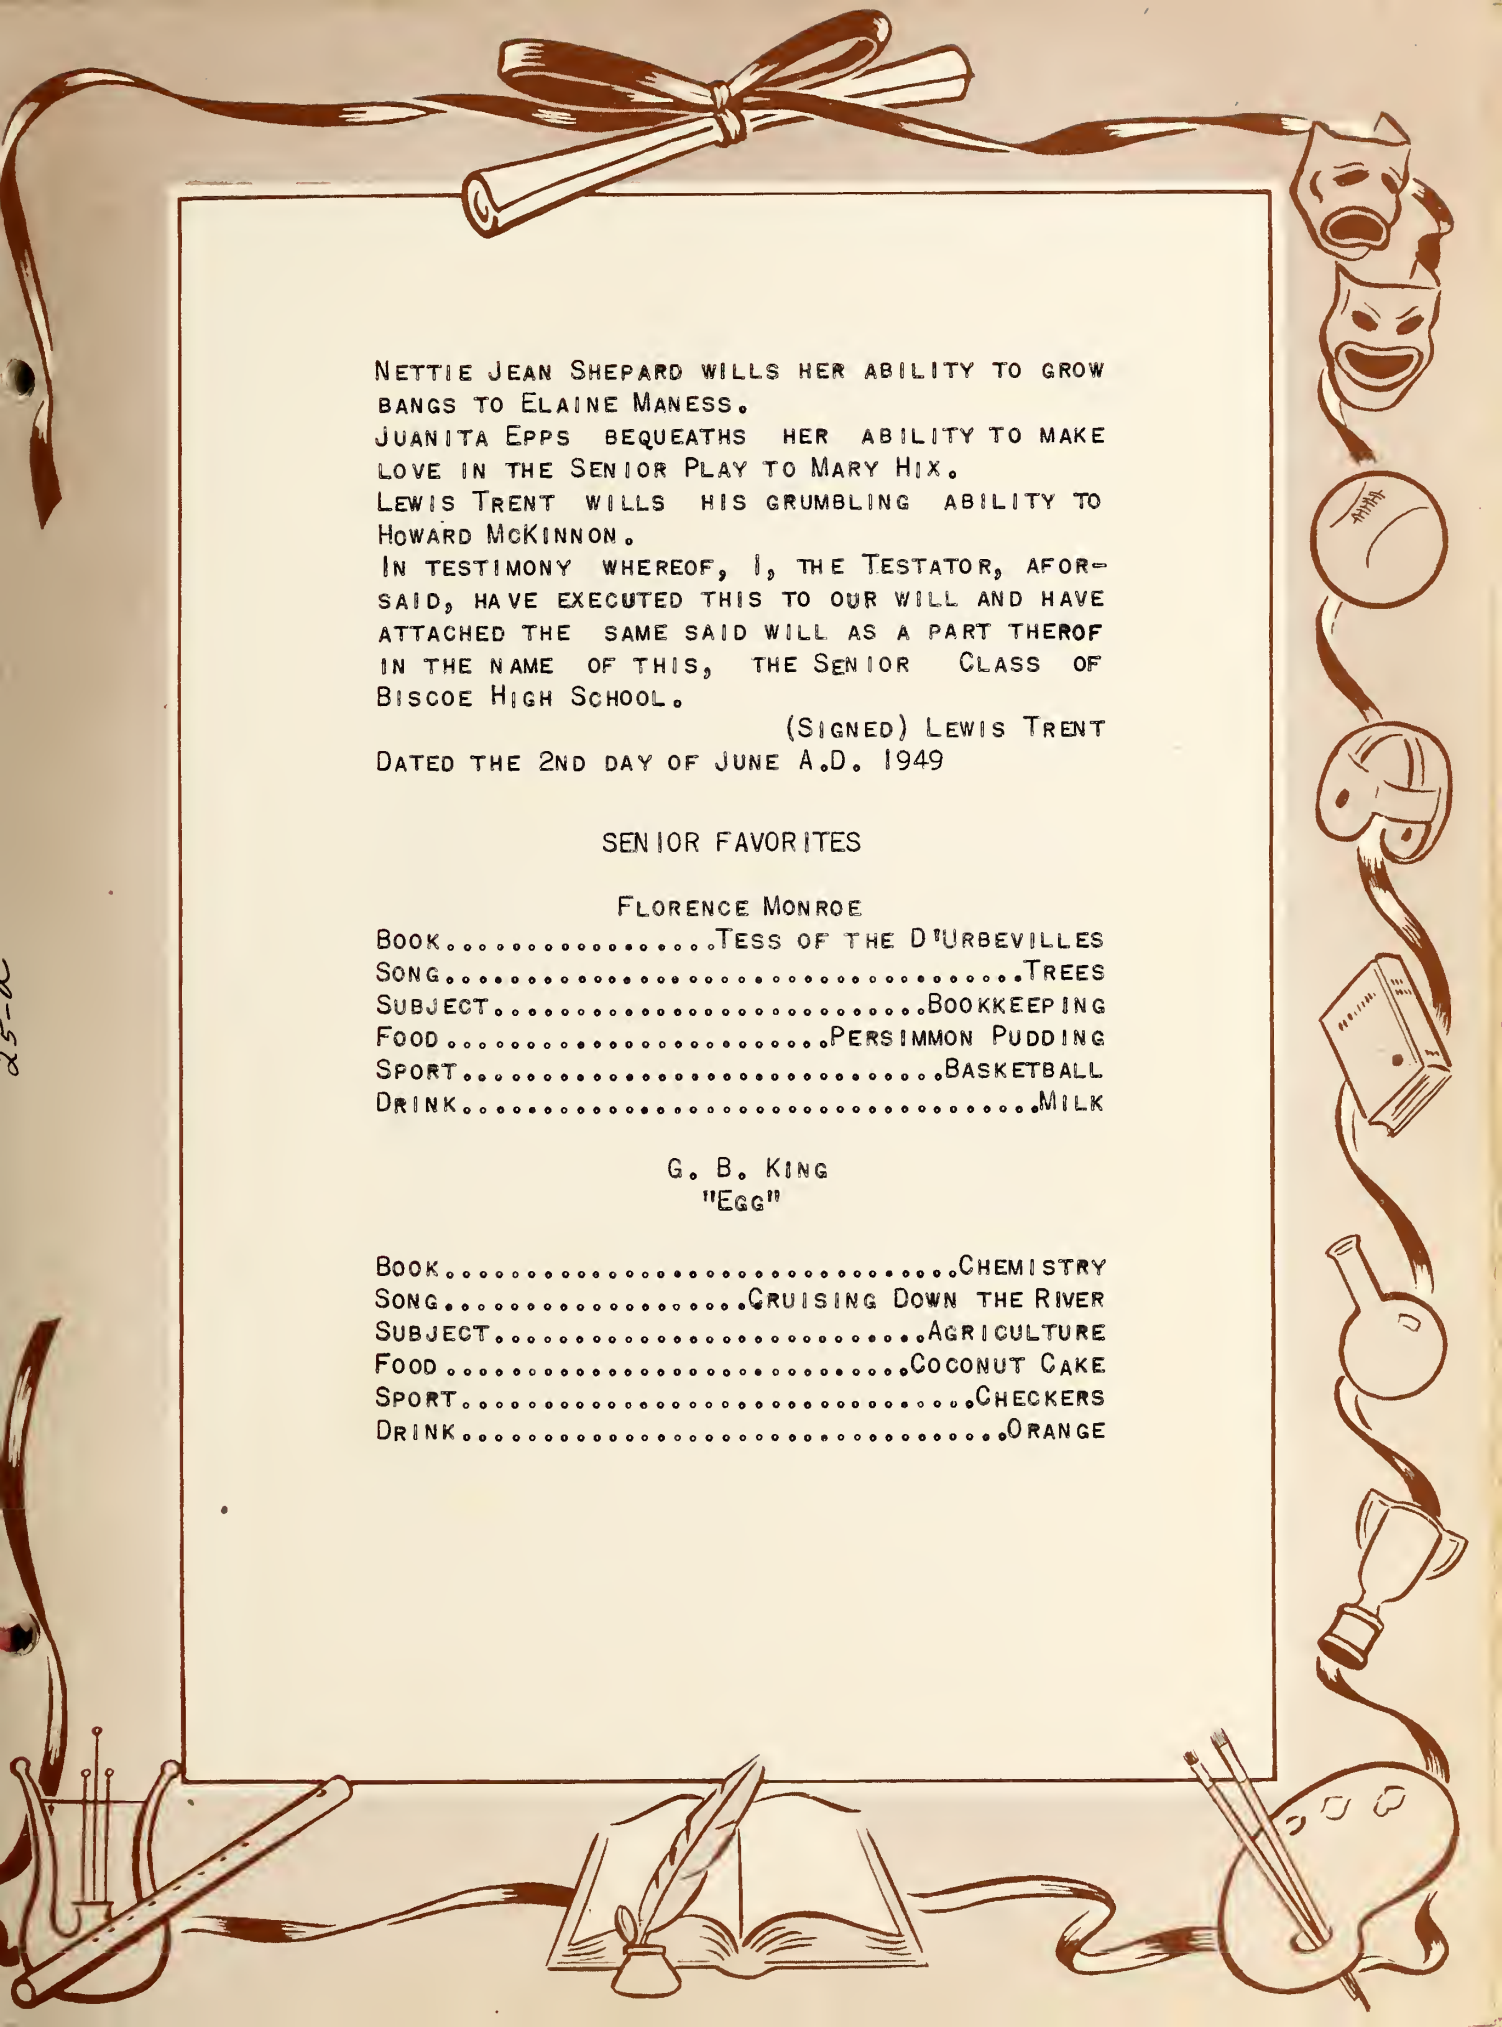 Nettie Jean Shepard wills her ability to grow
bangs to Elaine Maness.
Juanita Epps bequeaths her ability to make
love in the Senior Play to Mary Hix.
Lewis Trent wills his grumbling ability to
Howard McKinnon.
In testimony whereof, I, the Testator, afor-
said, have executed this to our will and have
attached the same said will as a part therof
in the name of this, the Senior Class of
Biscoe High School.
(Signed) Lewis Trent
Dated the 2nd day of June A.D. 1949
SENIOR FAVORITES
Florence Monroe
Book.................Tess of the D'Urbevilles
Song....................................Trees
Subject...........................Bookkeeping
Food........................Persimmon Pudding
Sport..............................Basketball
Drink....................................Milk
G. B. King
"Egg"
Book................................Chemistry
Song...................Cruising Down the River
Subject...........................Agriculture
Food.............................Coconut Cake
Sport................................Checkers
Drink..................................Orange
25-a